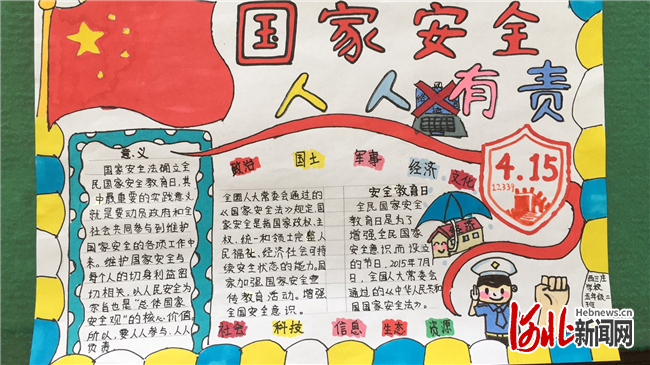 国家安全
人人有责
意义
国家安全法确立全
民国家安全教育日,其
中最重要的实践意义
就是要动员政府和全
社会共同参与到维护
国家安全的各项工作中
来。维护国家安全与
每个人的切身利益密
切相关,以人民安全为
宗旨也是“总体国家
安全观”的核心价值
所以,要人人参与,人人
负责
政治 国土 军事 经济 文化
全国人大常委会通过的
《国家安全法》规定,国
家安全是指国家政权、主
权、统一和领土完整、人
民福祉、经济社会可持
续安全状态的能力。国
家加强国家安全宣
传教育活动。增强
全国安全意识。
安全教育日
全民国家安全
教育日是为了
增强全民国家
安全意识而设立
的节日。2015年7月1
日,全国人大常委会
通过的《中华人民共和
国国家安全法》。
社会 科技 信息 生态 资源
4.15
12339
经济
西三庄
学校
五年级二
河北新闻网
Hebnews.cn